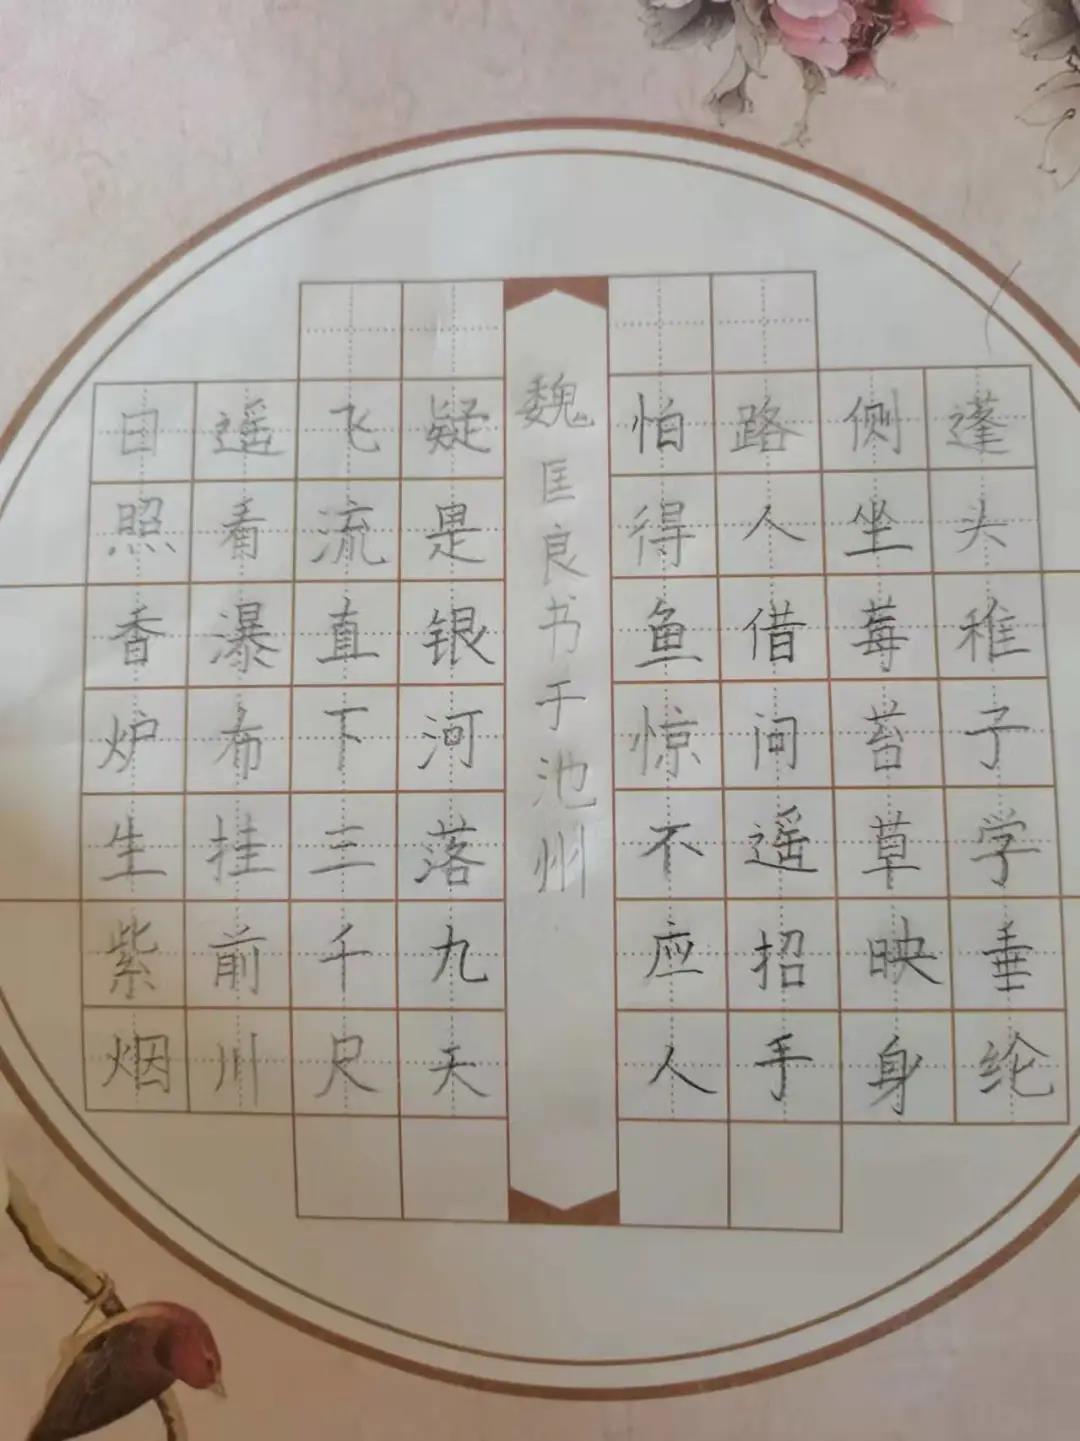 蓬头稚子学垂纶
侧坐莓苔草映身
路人借问遥招手
怕得鱼惊不应人
魏匡良书于池州
日照香炉生紫烟
遥看瀑布挂前川
飞流直下三千尺
疑是银河落九天